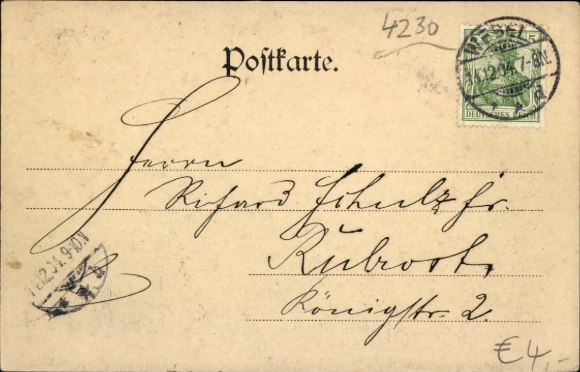 4230
Postkarte.
WESEL
14.12.04.7-8N.
DEUTSCHES REICH
Herrn
Richard Schulz jr.
Ruhrort.
Königstr. 2.
12.04.9-10N
€4,-